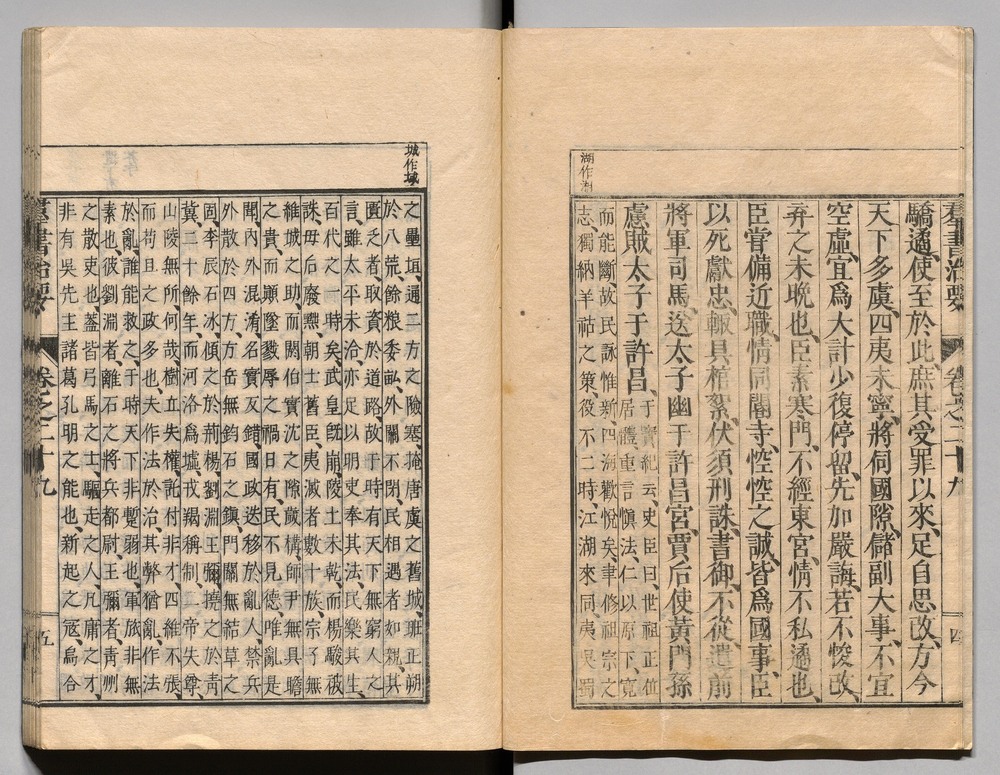 群書治要 卷之二十九 四
驕適、使至於此、庶其受罪以來、足自思改、方今
天下多虞、四夷未寧、將伺國隙、儲副大事、不宜
空虛、宜爲大計、少復停留、先加嚴誨、若不悛改、
弃之未晚也、臣素寒門、不經東宮、情不私適也、
臣嘗備近職、情同閽寺、悾悾之誠、皆爲國事、臣
以死獻忠、輙具棺絮、伏須刑誅、書御、不從、遣前
將軍司馬、送太子幽于許昌宮、賈后使黃門孫
慮賊太子于許昌、
于寶紀云、史臣曰、世祖正位
居體、重言愼法、仁以厚下、寬
而能斷、故民詠惟新、四海歡悅矣、聿修祖宗之
志、獨納羊祜之策、役不二時、江湖來同、夷吳蜀
湖作湘
之壘垣、通二方之險塞、掩唐虞之舊城、班正朔
於八荒、餘粮委畝、外關不閉、民相遇者如親、其
匱乏者、取資於道路、故于時有天下無窮人之
言、雖太平未洽、亦足以明吏奉其法、民樂其生、
百代之一時矣、武皇旣崩、陵土未乾、而楊駿被
誅、毋后廢黜、朝士舊臣、夷滅者數十族、宗子無
維城之助、而閼伯實沈之隙歲構、師尹無具瞻
之貴、而顚墜戮辱之禍日有、民不見德、唯亂是
聞、內外混淆、名實反錯、國政迭移於亂人、禁兵
外散於四方、方岳無鈞石之鎭、門關無結草之
固、李辰石冰傾之於荊楊、劉淵王彌撓之於靑
冀、二十餘年、而河洛爲墟、戎羯稱制、二帝失尊、
山陵無所、何哉、樹立失權、託付非才、四維不張、
而苟且之政多也、夫作法於治、其弊猶亂、作法
於亂、誰能救之、于時天下非暫弱也、軍旅非無
素也、彼劉淵者、離石之將兵都尉、王彌者、靑州
之散吏也、蓋皆弓馬之士、驅走之人、凡庸之才、
非有吳先主諸葛孔明之能也、新起之寇、烏合
城作域
群書治要 卷之二十九 五